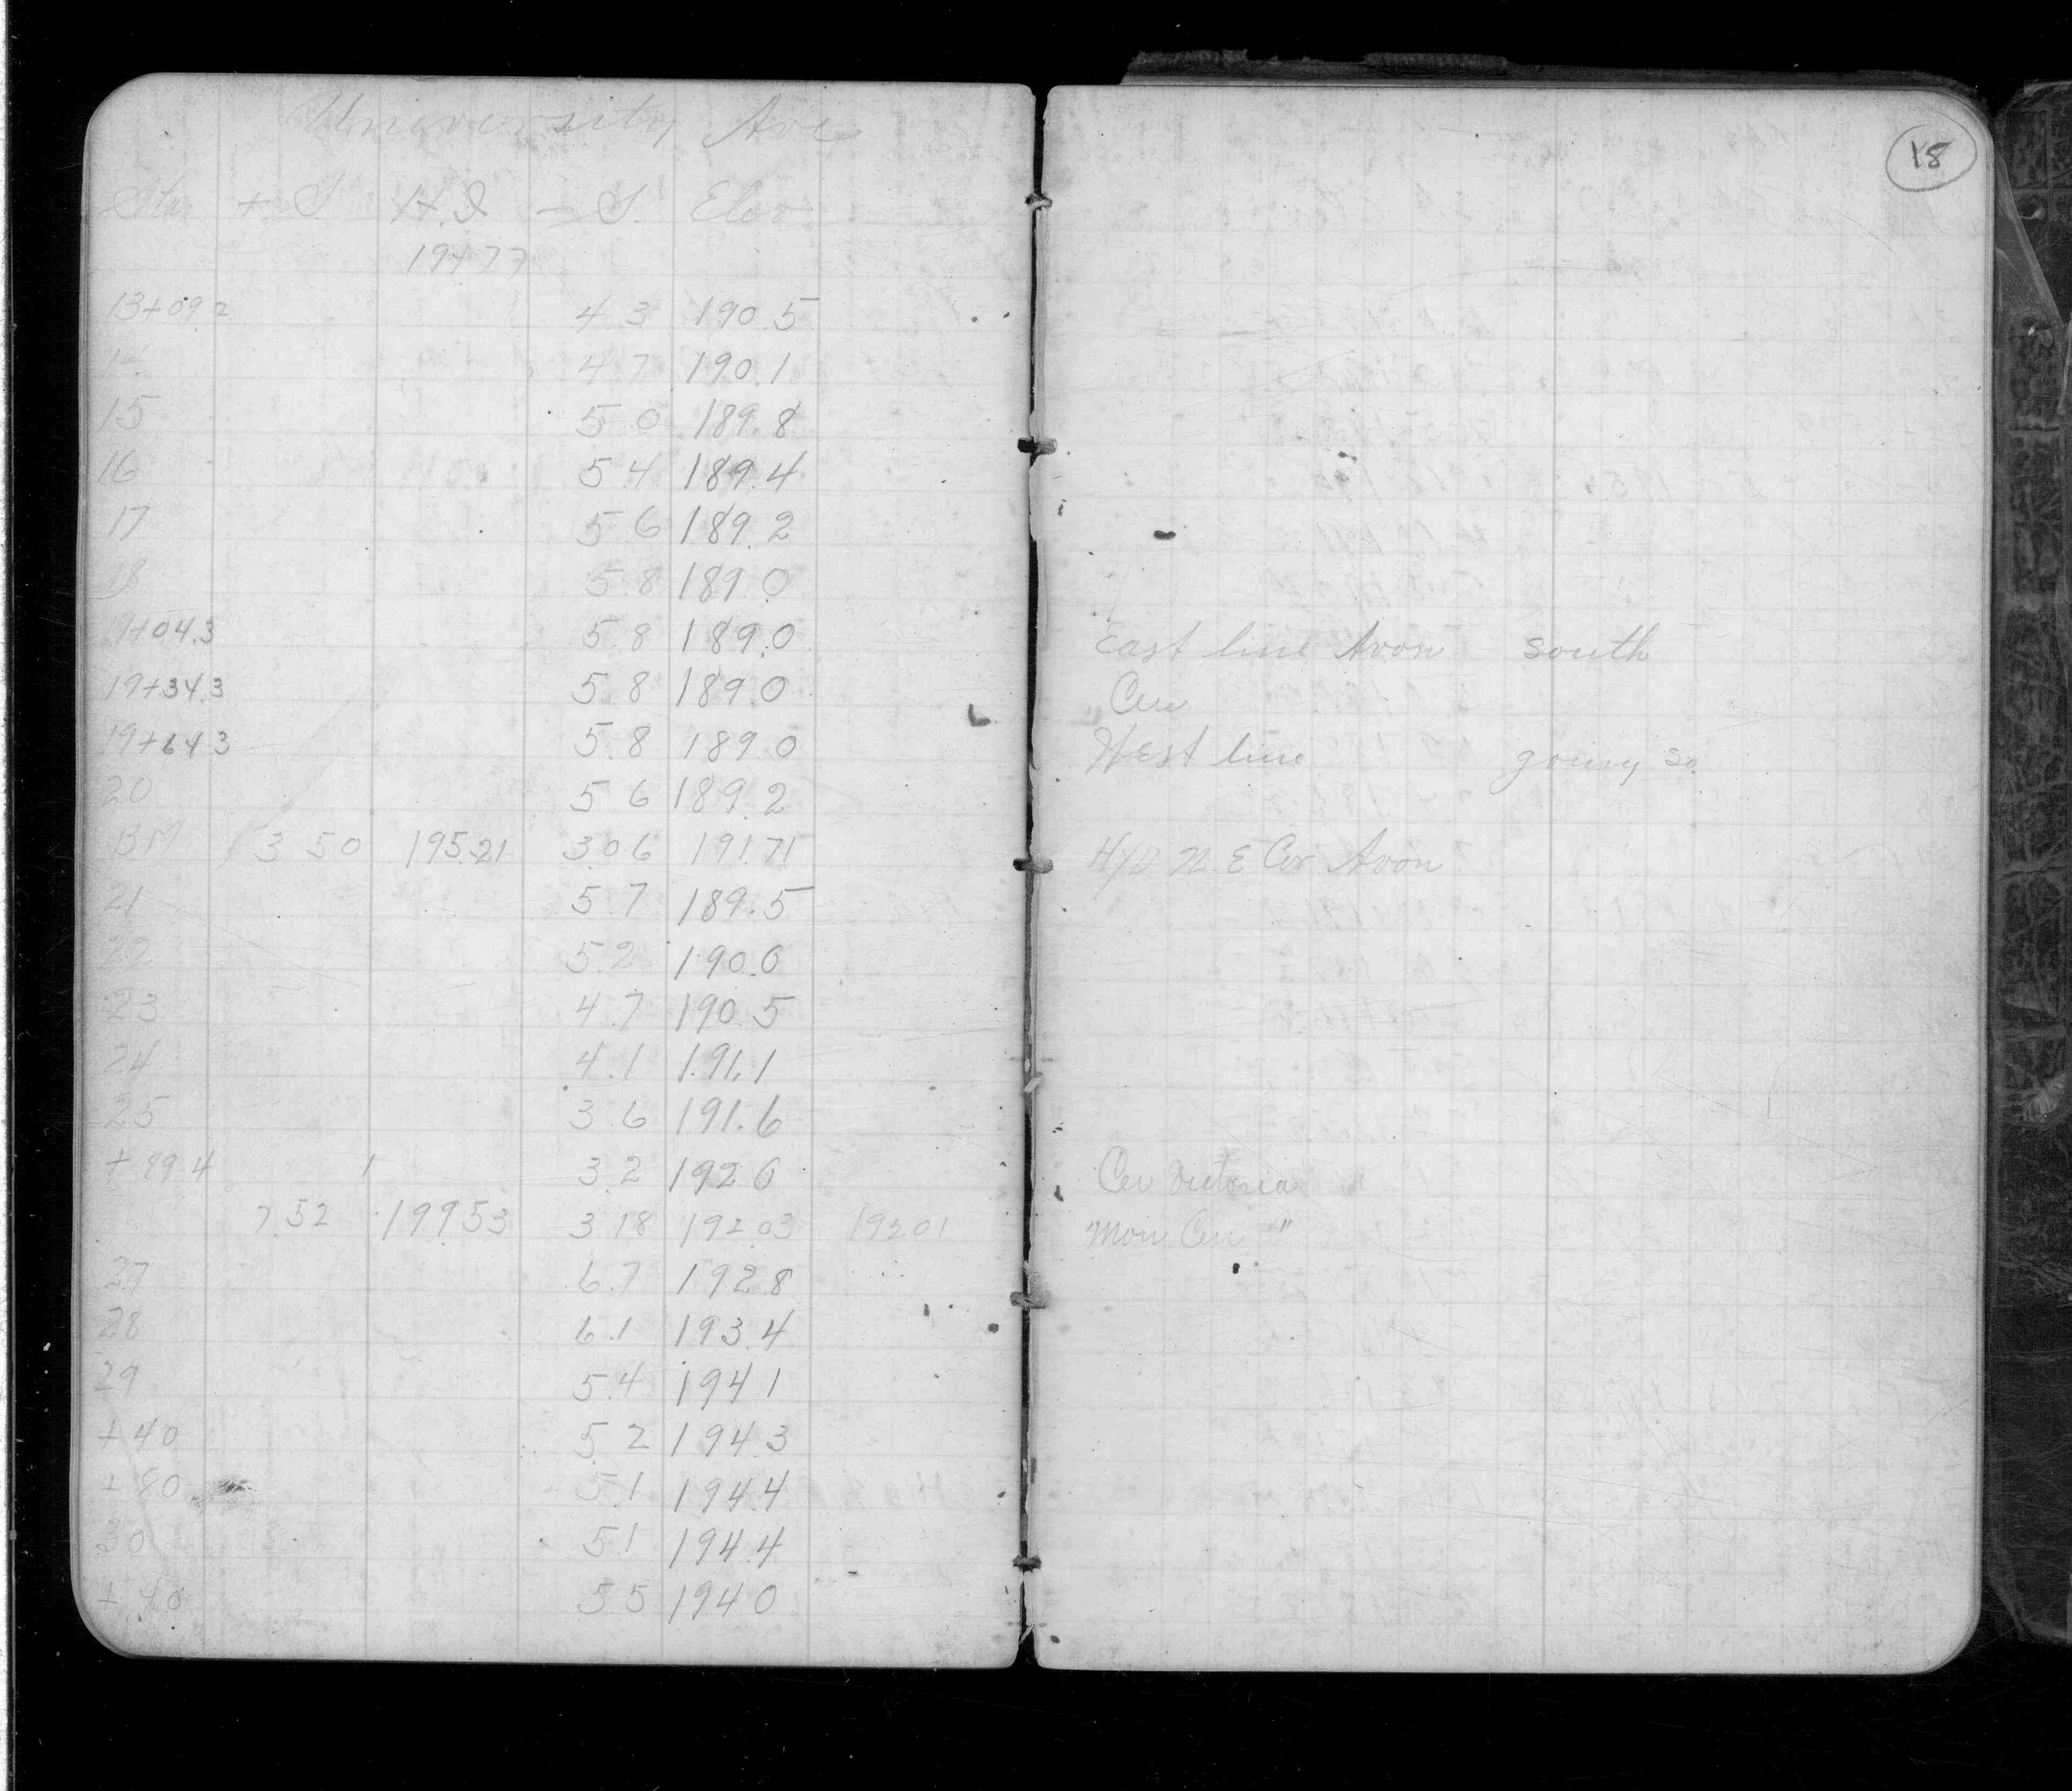 University Ave
Sta + S. H.I - S. Elev
194 77
13+09.2 4.3 190.5
14 4.7 190.1
15 5.0 189.8
16 5.4 189.4
17 5.6 189.2
18 5.8 189.0
19+04.3 5.8 189.0 East line Avon south
19+34.3 5.8 189.0 Cen
19+64.3 5.8 189.0 West line going So
20 5.6 189.2
BM 3 50 195.21 3.06 191.71 Hyd N. E Cor Avon
21 5.7 189.5
22 5.2 190.0
23 4.7 190.5
24 4.1 191.1
25 3.6 191.6
+ 89.4 3.2 192 0 Cen Victoria
7 52 199 53 3 18 192 03 192 01 Mon Cen "
27 6.7 192.8
28 6.1 193.4
29 5.4 194 1
+ 40 5 2 194 3
+ 80 5.1 194.4
30 5.1 194.4
+ 40 5 5 194 0
18